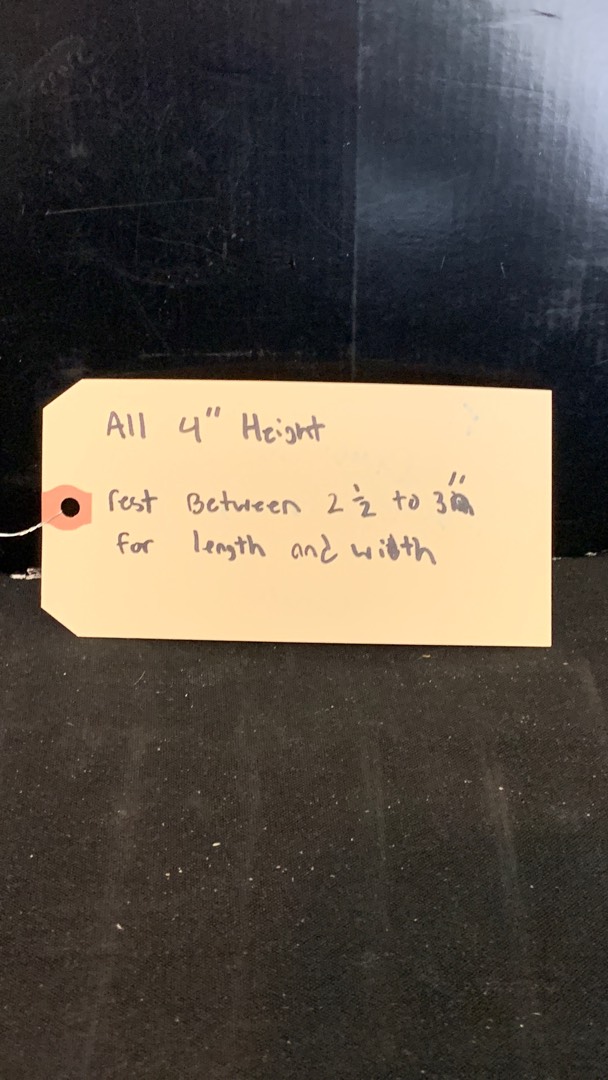 All 4" Height
rest Between 2 1/2 to 3"
for length and width